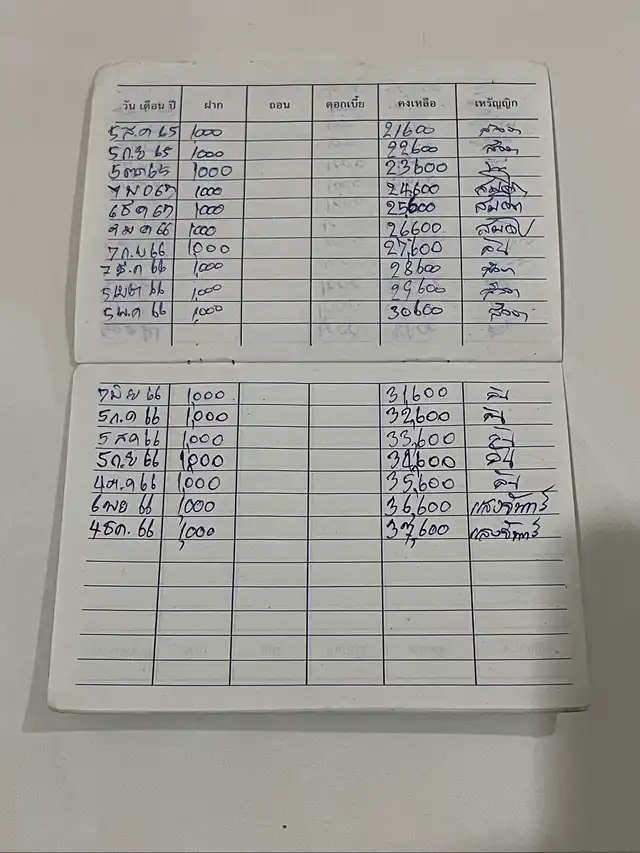 วัน เดือน ปี ฝาก ถอน ดอกเบี้ย คงเหลือ เหรัญญิก
5 ส.ค 65 1000 21600
5 ก.ย 65 1000 22600
5 ตค 65 1000 23600
7 พย 65 1000 24600
6 ธค 65 1000 25600
1000 26600
7 ก.พ 66 1,000 27,600
7 มี.ค 66 1,000 28600
5 เมย 66 1,000 29600
5 พ.ค 66 1,000 30600
7 มิย 66 1,000 31,600
5 ก.ค 66 1,000 32,600
5 สค 66 1,000 33,600
5 ก.ย 66 1,000 34,600
4 ต.ค 66 1,000 35,600
6 พย 66 1,000 36,600
4 ธค. 66 1,000 37,600